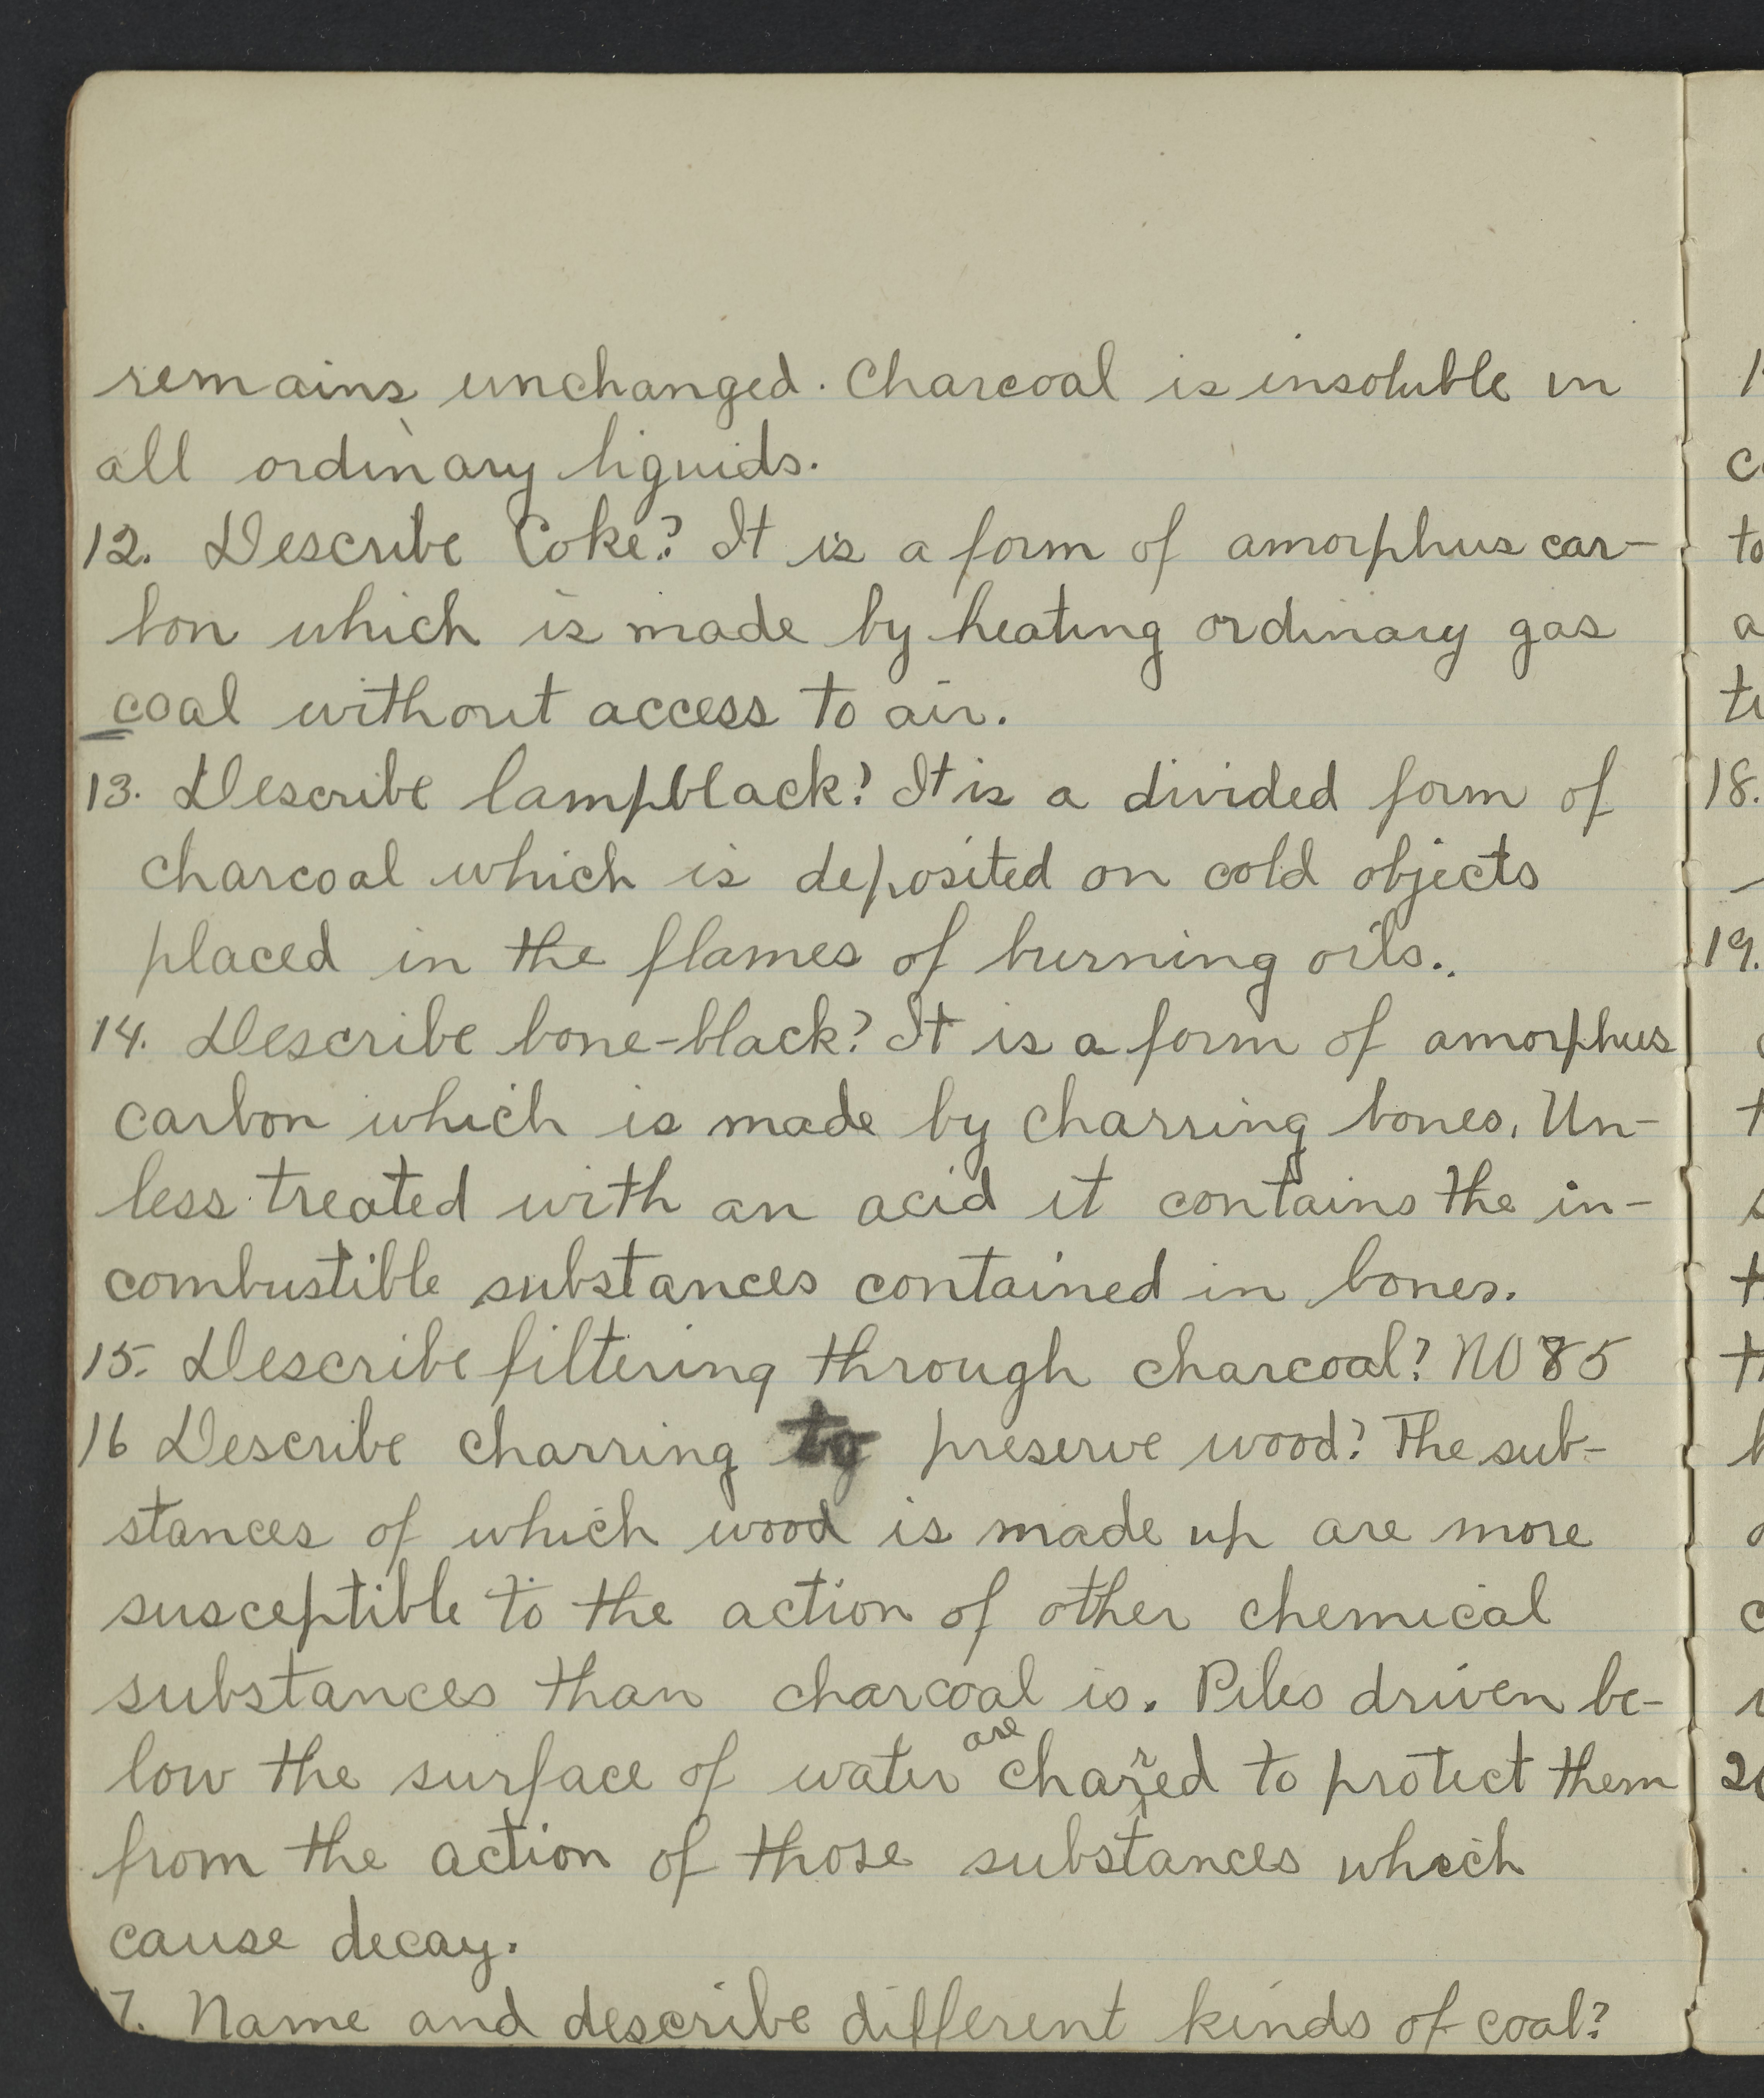 remains unchanged. Charcoal is insoluble in
all ordinary liquids.
12. Describe Coke? It is a form of amorphus car-
bon which is made by heating ordinary gas
coal without access to air.
13. Describe lampblack? It is a divided form of
charcoal which is deposited on cold objects
placed in the flames of burning oils..
14. Describe bone-black? It is a form of amorphus
carbon which is made by charring bones. Un-
less treated with an acid it contains the in-
combustible substances contained in bones.
15. Describe filtering through charcoal? NO 85
16 Describe charring to preserve wood? The sub-
stances of which wood is made up are more
susceptible to the action of other chemical
substances than charcoal is. Piles driven be-
low the surface of water are charred to protect them
from the action of those substances which
cause decay.
7. Name and describe different kinds of coal?
18.
19.